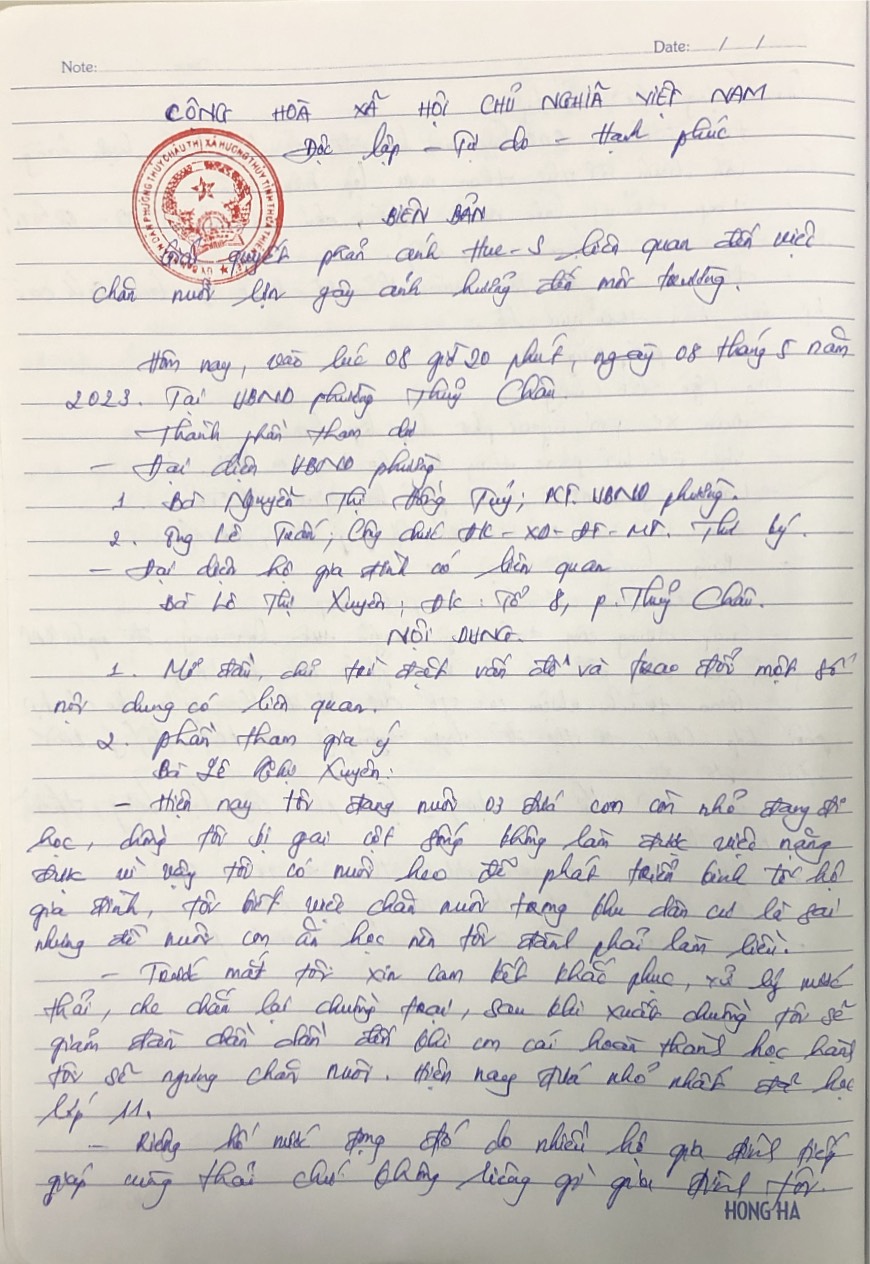 Note:
Date: / /
CỘNG HOÀ XÃ HỘI CHỦ NGHĨA VIỆT NAM
Độc lập - Tự do - Hạnh phúc
BIÊN BẢN
Giải quyết phản ánh Hue-S liên quan đến việc
chăn nuôi lợn gây ảnh hưởng đến môi trường.
Hôm nay, vào lúc 08 giờ 20 phút, ngày 08 tháng 5 năm
2023. Tại UBND phường Thuỷ Châu.
Thành phần tham dự
- Đại diện UBND phường
1. Bà Nguyễn Thị Hồng Tuý; PCT. UBND phường.
2. Ông Lê Tuấn; Công chức ĐC-XD-ĐT-MT. Thư ký.
- Đại diện hộ gia đình có liên quan
Bà Lê Thị Xuyên; ĐC: Tổ 8, P. Thuỷ Châu.
NỘI DUNG.
1. Mở đầu, chủ trì đặt vấn đề và trao đổi một số
nội dung có liên quan.
2. Phần tham gia ý
Bà Lê Thị Xuyên:
- Hiện nay tôi đang nuôi 03 đứa con còn nhỏ đang đi
học, chồng tôi bị gai cột sống không làm được việc nặng
được vì vậy tôi có nuôi heo để phát triển kinh tế hộ
gia đình, tôi biết việc chăn nuôi trong khu dân cư là sai
nhưng để nuôi con ăn học nên tôi đành phải làm liều.
- Trước mắt tôi xin cam kết khắc phục, xử lý nước
thải, che chắn lại chuồng trại, sau khi xuất chuồng tôi sẽ
giảm đàn dần dần đến khi con cái hoàn thành học hành
tôi sẽ ngưng chăn nuôi. Hiện nay đứa nhỏ nhất học
lớp 11.
- Riêng hố nước đọng đó do nhiều hộ gia đình tiếp
giáp cùng thải chứ không riêng gì gia đình tôi.
HONG HA